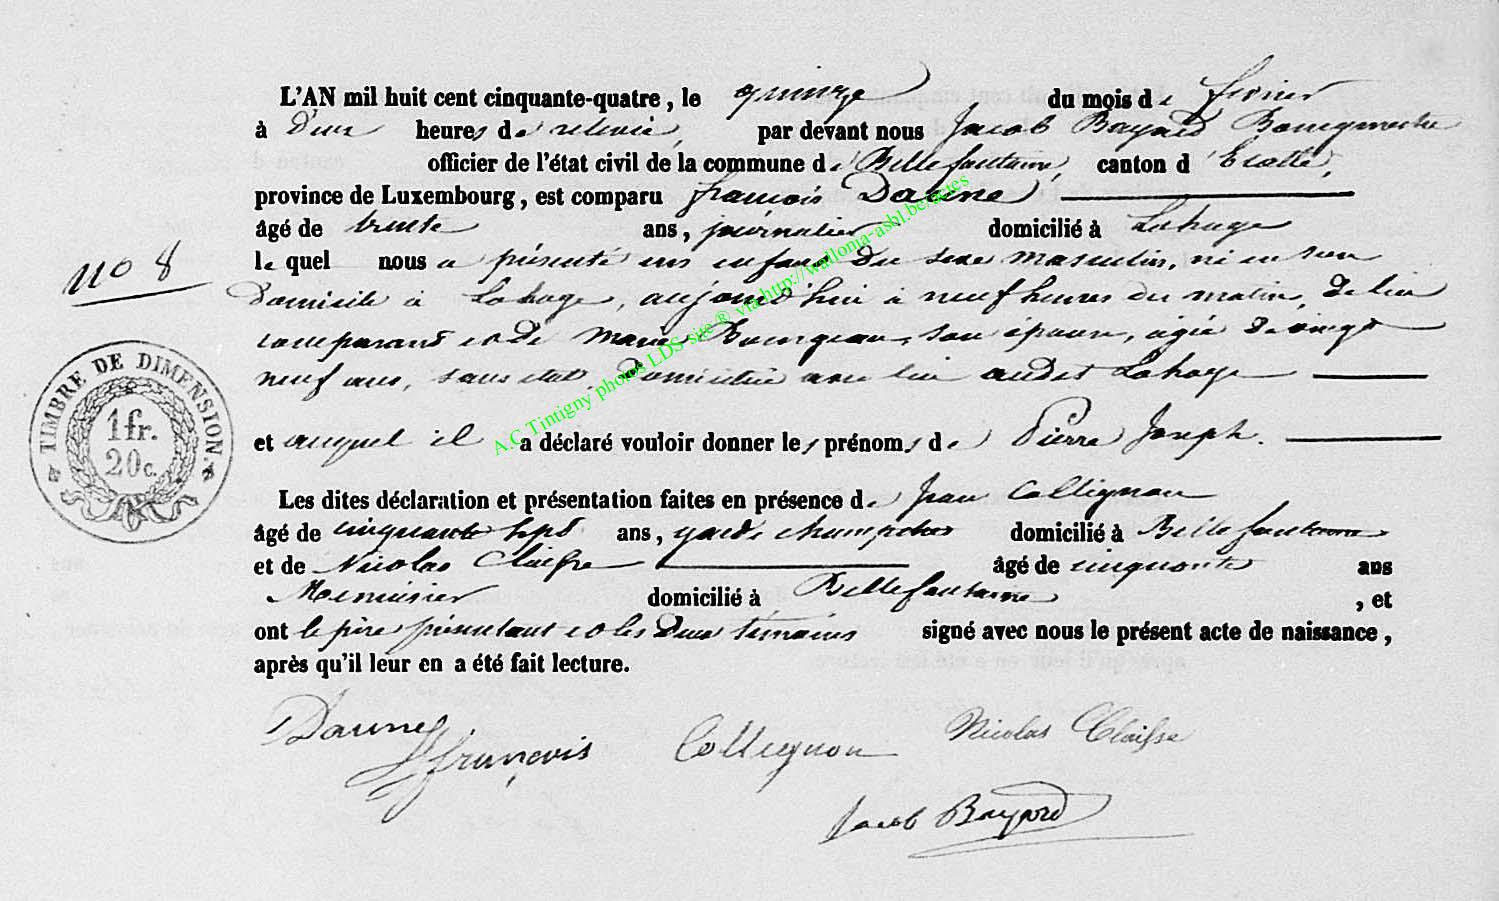 L'AN mil huit cent cinquante-quatre, le quinze du mois de février
à deux heures de relevée, par devant nous Jacob Bayard Bourgmestre
officier de l'état civil de la commune de Bellefontaine, canton d'Etalle,
province de Luxembourg, est comparu françois Daune
âgé de trente ans, journalier domicilié à Lahage
le quel nous a présenté un enfant du sexe masculin, né en son
No 8
domicile à Lahage, aujourd'hui à neuf heures du matin, de lui
comparant et de Marie Bourgeau, son épouse, agée de vingt
neuf ans, sans etat, domiciliée avec lui audit Lahage
TIMBRE DE DIMENSION
1 fr.
20 c.
et auquel il a déclaré vouloir donner les prénoms de Pierre Joseph.
Les dites déclaration et présentation faites en présence de Jean Collignon
âgé de cinquante sept ans, garde champetre domicilié à Bellefontaine
et de Nicolas Claisse âgé de cinquante ans
Menuisier domicilié à Bellefontaine, et
ont le père présentant et les deux témoins signé avec nous le présent acte de naissance,
après qu'il leur en a été fait lecture.
Daune
françois Collignon Nicolas Claisse
Jacob Bayard
A.C Tintigny photos LDS site ® via http://wallonia-asbl.be/actes